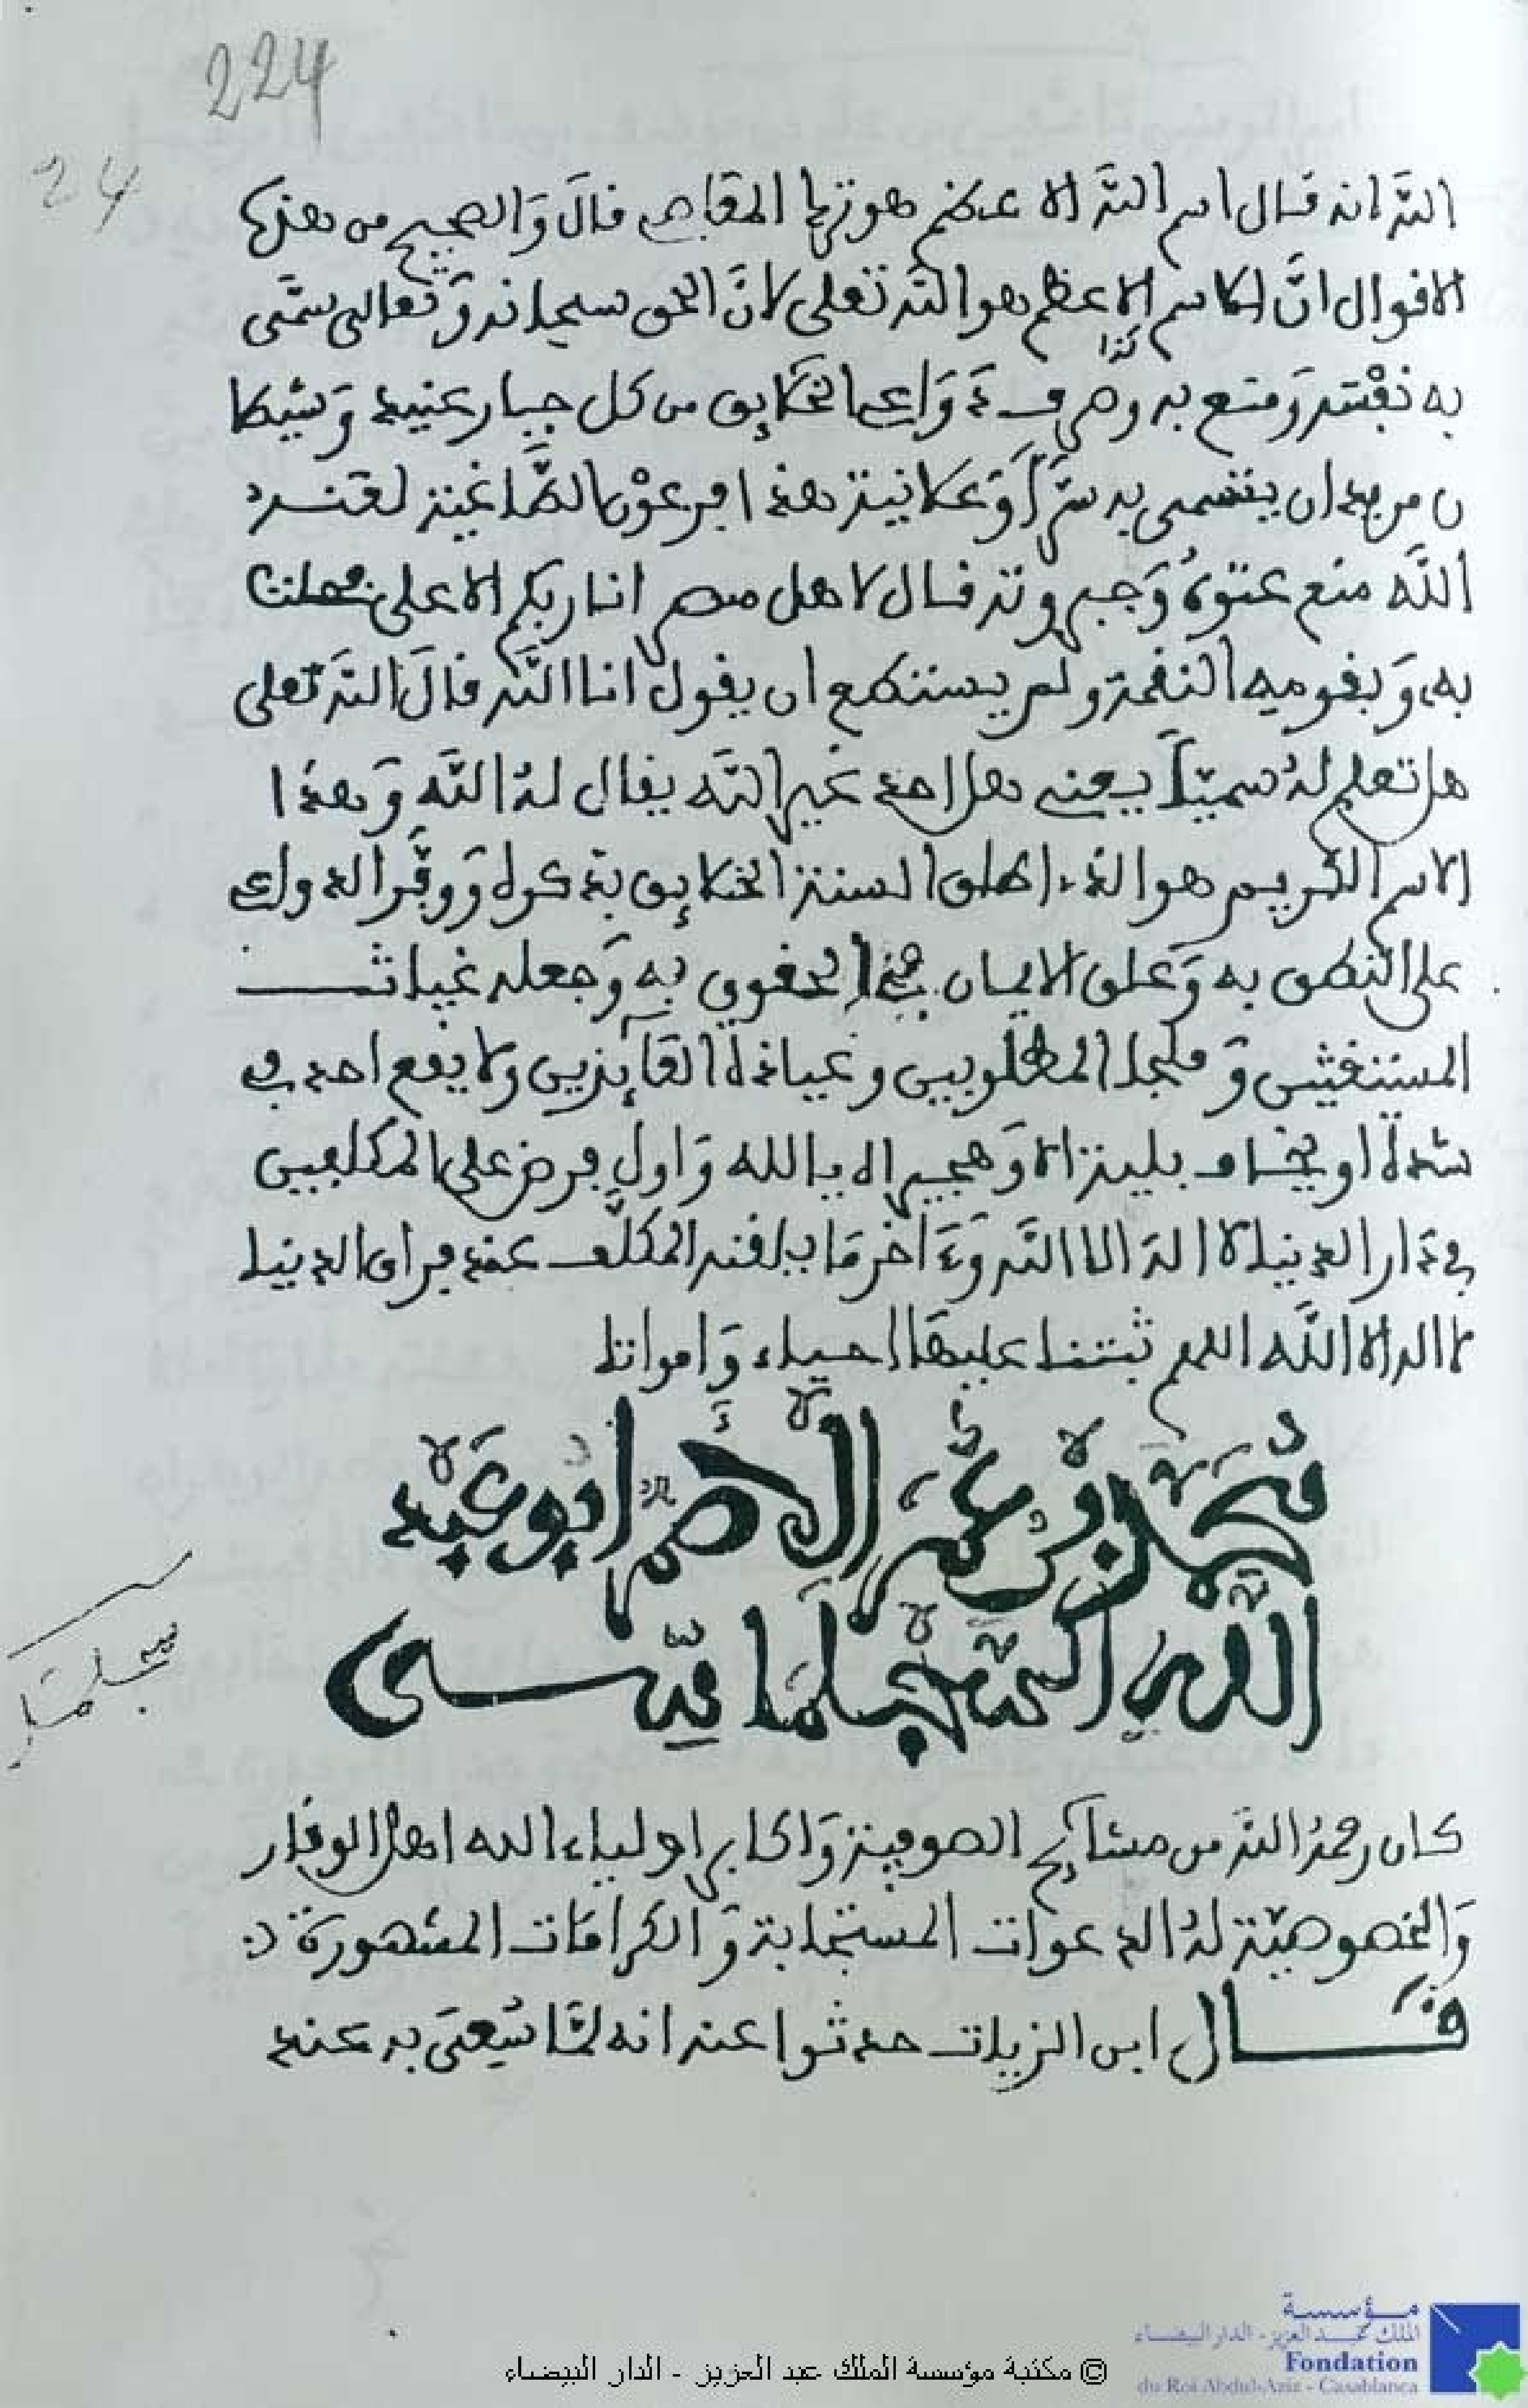 224
24
الله انه قال اسم الله الاعظم هو نزهة المقاصد قال والصحيح من هذه
الاقوال ان الاسم الاعظم هو الله تعلى لان الحق سبحانه وتعالى سمى
كذا
به نفسه ومنع به وصرف دواعى الخلايق من كل جبار عنيد وشيطا
ن مريد ان يتسمى به سرا وعلانية هذا فرعون الطاغية لعنه
الله مع عتوه وجبروته قال لاهل مصر انا ربكم الاعلى فحلت
به وبقوميه النقمة ولم يستطع ان يقول انا الله قال الله تعلى
هل تعلم له سميا يعنى هل احد غير الله يقال له الله وهذا
الاسم الكريم هو الذي اطلق السنة الخلايق بذكره ووفر الدواعى
على النطق به وعلق الايمان الحقوق به وجعله غياث
المستغيثين وملجا المطلوبين وعياذة الفآيزين ولا يقع احد في
شدة او يخاف بلية الا وهجيراه يا الله واول فرض على المكلفين
في دار الدنيا لا اله الا الله وءاخر ما يلفنه المكلف عند فراق الدنيا
لا اله الا الله اللهم ثبتنا عليها احياء وامواتا
محمد بن عمر الاصم ابو عبد
الله السجلماسي
سجلماسة
كان رحمه الله من مشايخ الصوفية واكابر اولياء الله اهل الوقار
والخصوصية له الدعوات المستجابة والكرامات المشهورة
قال ابن الزيات حدثوا عنه انه لما سعى به عند
مؤسسة
الملك عبد العزيز - الدار البيضاء
Fondation
du Roi Abdul-Aziz - Casablanca
© مكتبة مؤسسة الملك عبد العزيز - الدار البيضاء